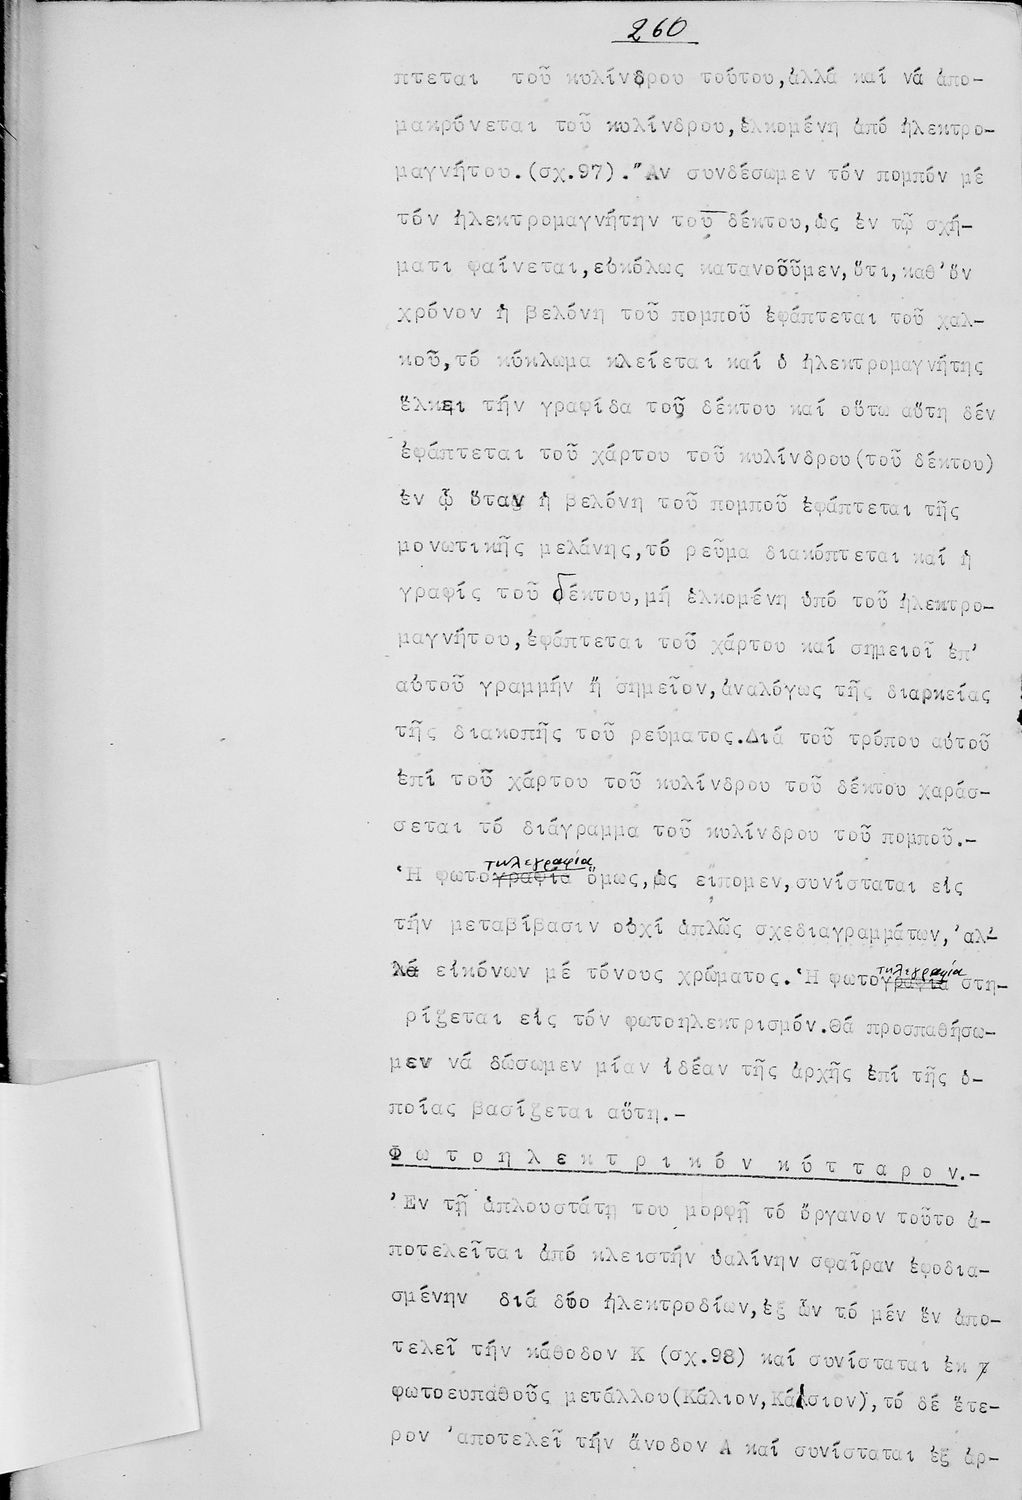 260
πτεται τοῦ κυλίνδρου τούτου,ἀλλά καί νά ἀπο-
μακρύνεται τοῦ κυλίνδρου,ἑλκομένη ἀπό ἠλεκτρο-
μαγνήτου.(σχ.97)."Αν συνδέσωμεν τόν πομπόν μέ
τόν ἠλεκτρομαγνήτην τοῦ δέκτου,ὡς ἐν τῷ σχή-
ματι φαίνεται,εὐκόλως κατανοοῦμεν,ὅτι,καθ'ὅν
χρόνον ἡ βελόνη τοῦ πομποῦ ἐφάπτεται τοῦ χαλ-
κοῦ,τό κύκλωμα κλείεται καί ὁ ἠλεκτρομαγνήτης
ἕλκει τήν γραφίδα τοῦ δέκτου καί οὕτω αὕτη δέν
ἐφάπτεται τοῦ χάρτου τοῦ κυλίνδρου(τοῦ δέκτου)
ἐν ᾧ ὅταν ἡ βελόνη τοῦ πομποῦ ἐφάπτεται τῆς
μονωτικῆς μελάνης,τό ρεῦμα διακόπτεται καί ἡ
γραφίς τοῦ δέκτου,μή ἑλκομένη ὑπό τοῦ ἠλεκτρο-
μαγνήτου,ἐφάπτεται τοῦ χάρτου καί σημειοῖ ἐπ'
αὐτοῦ γραμμήν ἤ σημεῖον,ἀναλόγως τῆς διαρκείας
τῆς διακοπῆς τοῦ ρεύματος.Διά τοῦ τρόπου αὐτοῦ
ἐπί τοῦ χάρτου τοῦ κυλίνδρου τοῦ δέκτου χαράσ-
σεται τό διάγραμμα τοῦ κυλίνδρου τοῦ πομποῦ.-
τηλεγραφία
Ἡ φωτογραφία ὅμως,ὡς εἴπομεν,συνίσταται εἰς
τήν μεταβίβασιν οὐχί ἁπλῶς σχεδιαγραμμάτων,'αλ-
λά εἰκόνων μέ τόνους χρώματος.Ἡ φωτογραφία στη-
τηλεγραφία
ρίζεται εἰς τόν φωτοηλεκτρισμόν.Θά προσπαθήσω-
μεν νά δώσωμεν μίαν ἰδέαν τῆς ἀρχῆς ἐπί τῆς ὁ-
ποίας βασίζεται αὕτη.-
Φ ω τ ο η λ ε κ τ ρ ι κ ό ν κ ύ τ τ α ρ ο ν.-
'Εν τῇ ἁπλουστάτῃ του μορφῇ τό ὄργανον τοῦτο ἀ-
ποτελεῖται ἀπό κλειστήν ὑαλίνην σφαῖραν ἐφοδια-
σμένην διά δύο ἠλεκτροδίων,ἐξ ὧν τό μέν ἕν ἀπο-
τελεῖ τήν κάθοδον Κ (σχ.98) καί συνίσταται ἐκ
φωτοευπαθοῦς μετάλλου(Κάλιον,Καίσιον),τό δέ ἕτε-
ρον 'αποτελεῖ τήν ἄνοδον Α καί συνίσταται ἐξ ἀρ-